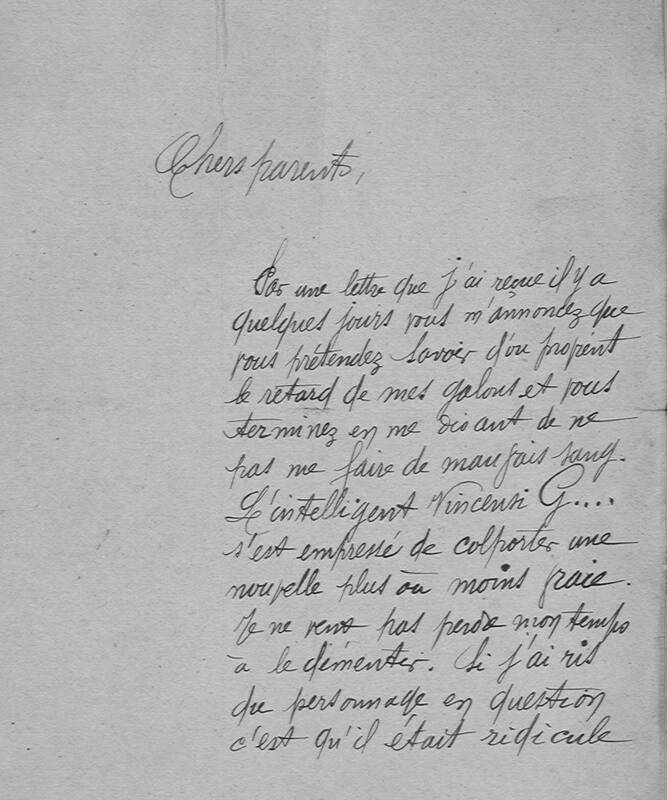 Chers parents,
Par une lettre que j'ai reçue il y a
quelques jours vous m'annoncez que
vous prétendez savoir d'ou provient
le retard de mes galons et vous
terminez en me disant de ne
pas me faire de mauvais sang.
L'intelligent Vincensi G....
s'est empressé de colporter une
nouvelle plus ou moins vraie.
Je ne veux pas perdre mon temps
à le démenter. Si j'ai ris
du personnage en question
c'est qu'il était ridicule